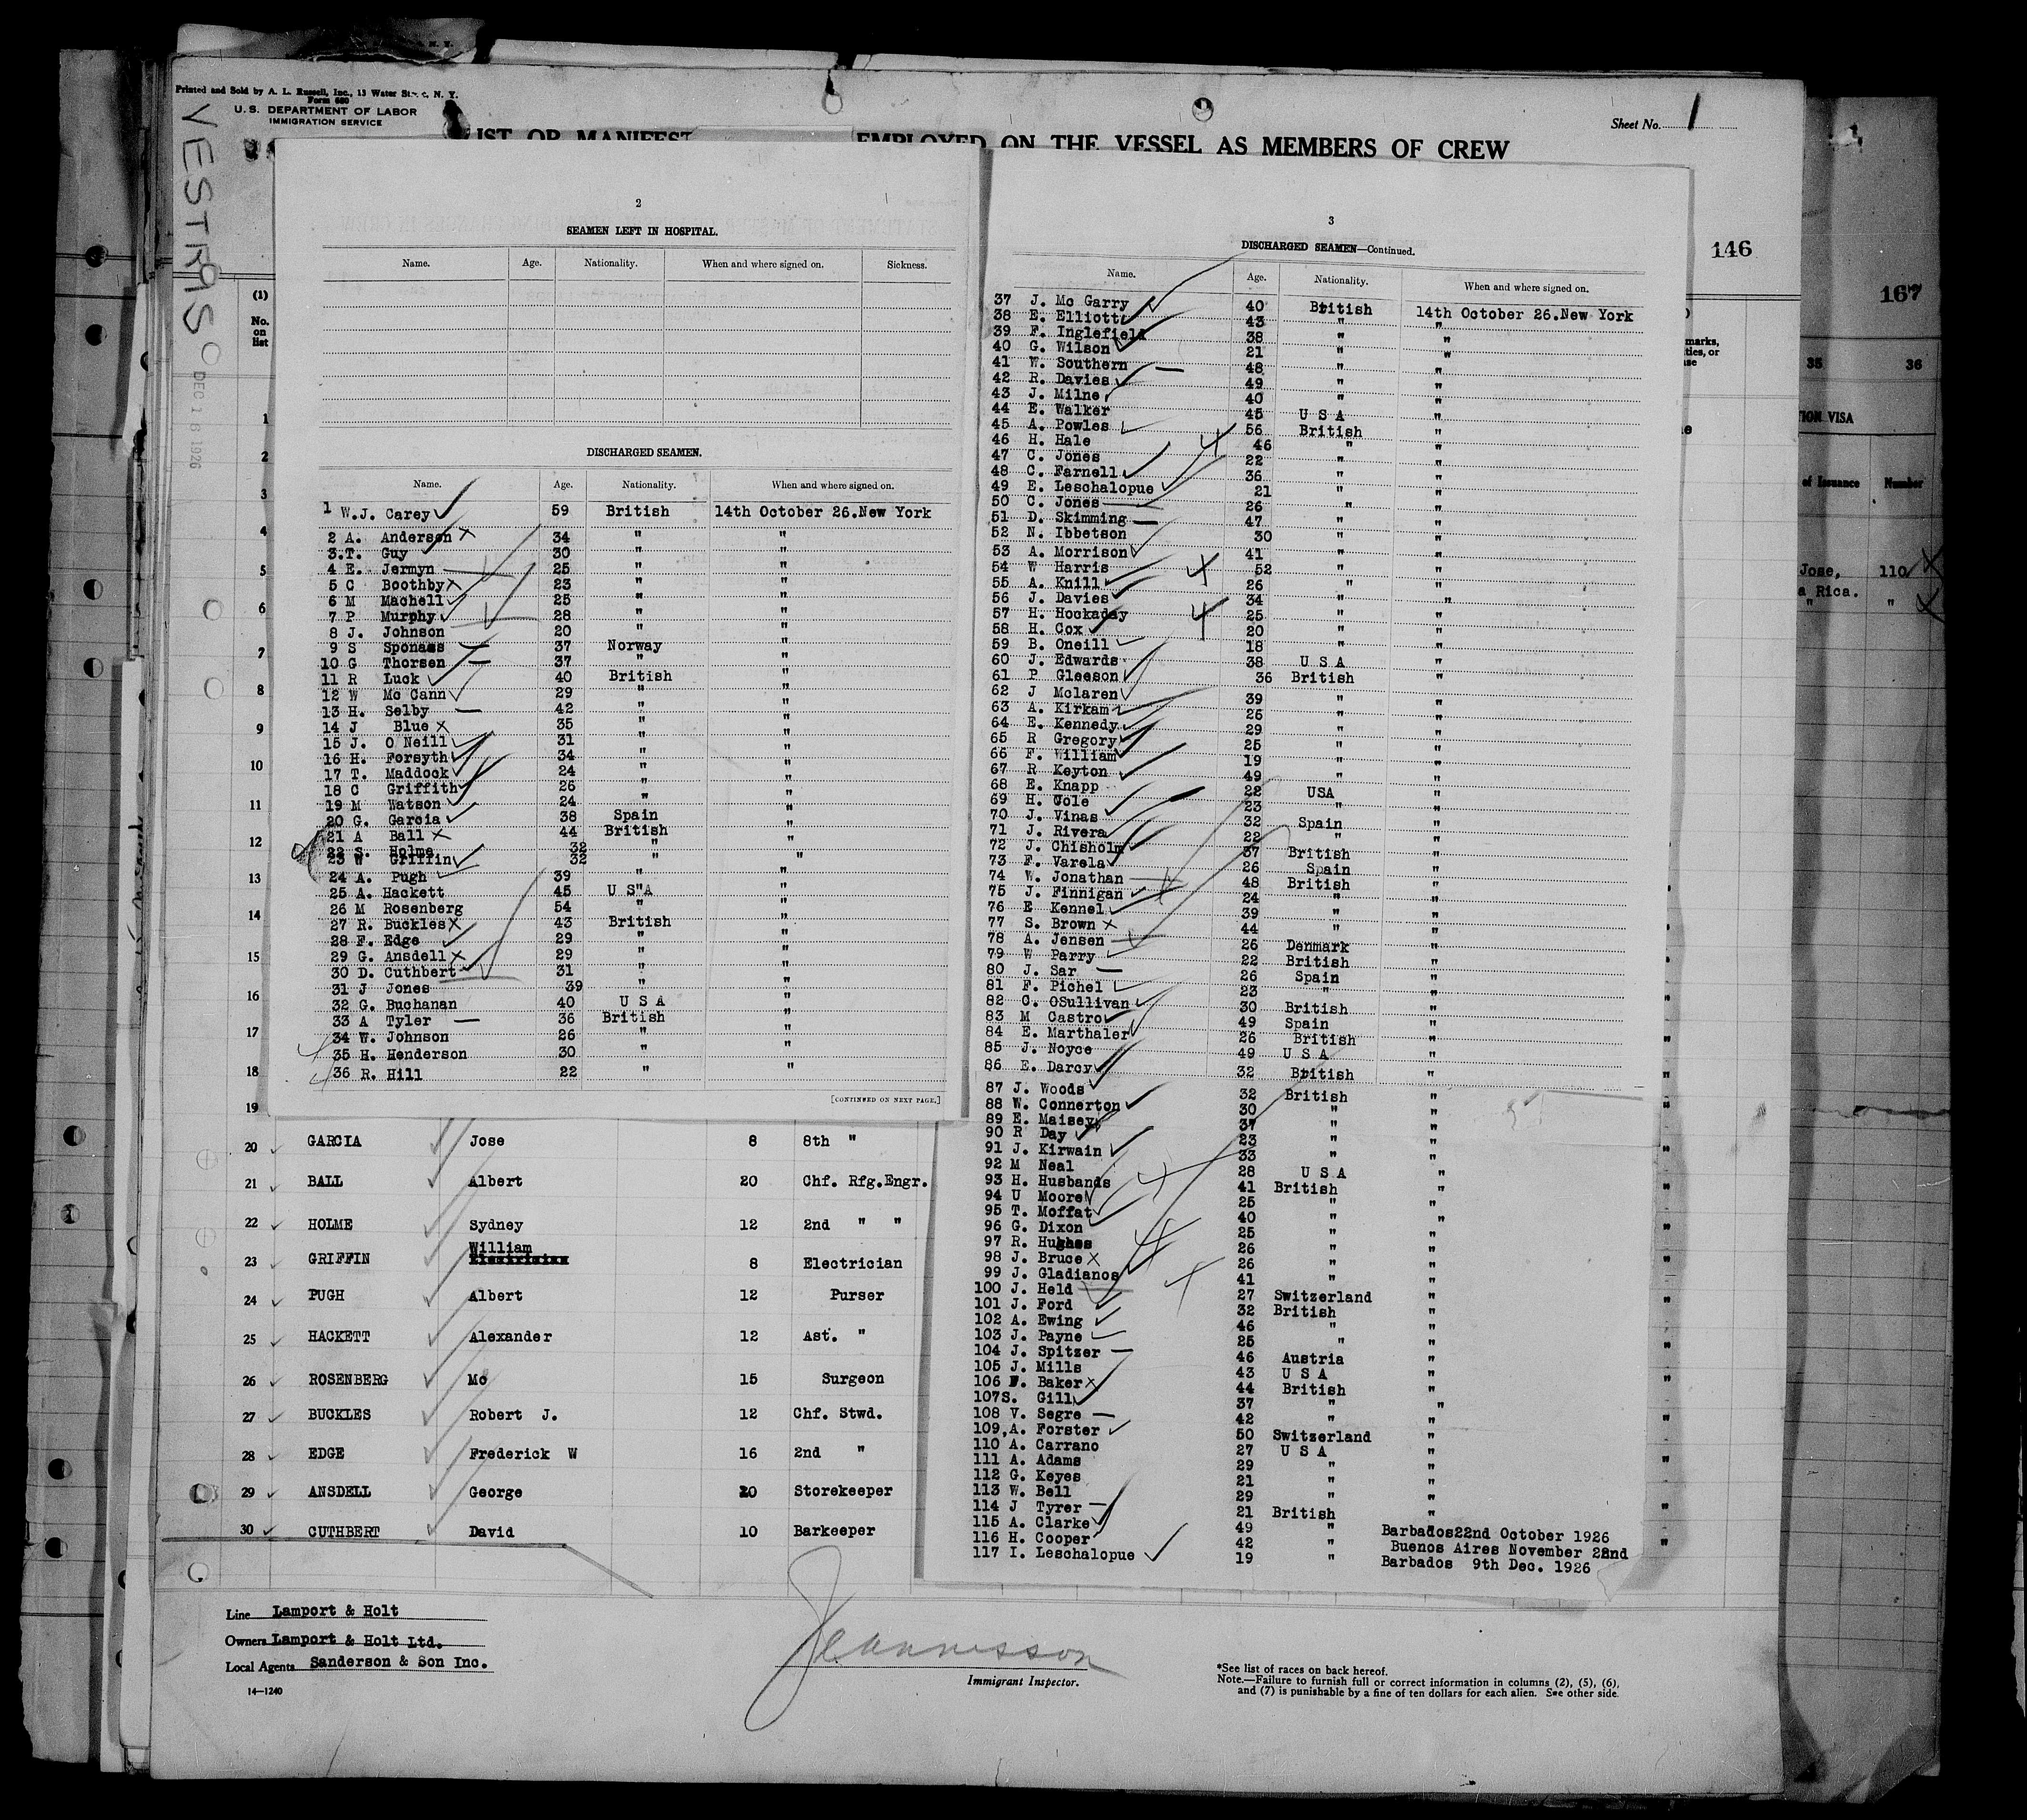 Printed and Sold by A. L. Russell, Inc., 13 Water N. Y.
Form 680
U. S. DEPARTMENT OF LABOR
IMMIGRATION SERVICE
Sheet No. 1
LIST OR MANIFEST EMPLOYED ON THE VESSEL AS MEMBERS OF CREW
VESTRIS
DEC 16 1926
146
167
35 36
(1)
No.
on
list
2
SEAMEN LEFT IN HOSPITAL.
Name. Age. Nationality. When and where signed on. Sickness.
DISCHARGED SEAMEN.
Name. Age. Nationality. When and where signed on.
1 W.J. Carey 59 British 14th October 26.New York
2 A. Anderson 34 " "
3.T. Guy 30 " "
4 E. Jermyn 25 " "
5 C Boothby 23 " "
6 M Machell 25 " "
7 P Murphy 28 " "
8 J. Johnson 20 " "
9 S Sponaas 37 Norway "
10 G Thorsen 37 " "
11 R Luck 40 British "
12 W Mc Cann 29 " "
13 H. Selby 42 " "
14 J Blue 35 " "
15 J. O Neill 31 " "
16 H. Forsyth 34 " "
17 T. Maddock 24 " "
18 C Griffith 26 " "
19 M Watson 24 " "
20 G. Garcia 38 Spain "
21 A Ball 44 British "
22 S. Holme 32 " "
23 W Griffin 32 " "
24 A. Pugh 39 " "
25 A. Hackett 45 U S A "
26 M Rosenberg 54 " "
27 R. Buckles 43 British "
28 F. Edge 29 " "
29 G. Ansdell 29 " "
30 D. Cuthbert 31 " "
31 J Jones 39 " "
32 G. Buchanan 40 U S A "
33 A Tyler 36 British "
34 W. Johnson 26 " "
35 H. Henderson 30 " "
36 R. Hill 22 " "
[CONTINUED ON NEXT PAGE.]
3
DISCHARGED SEAMEN—Continued.
Name. Age. Nationality. When and where signed on.
37 J. Mc Garry 40 British 14th October 26.New York
38 E. Elliott 43 " "
39 F. Inglefield 38 " "
40 G. Wilson 21 " "
41 W. Southern 48 " "
42 R. Davies 49 " "
43 J. Milne 40 " "
44 E. Walker 45 U S A "
45 A. Powles 56 British "
46 H. Hale 46 " "
47 C. Jones 22 " "
48 C. Farnell 36 " "
49 E. Leschalopue 21 " "
50 C. Jones 26 " "
51 D. Skimming 47 " "
52 N. Ibbetson 30 " "
53 A. Morrison 41 " "
54 W Harris 52 " "
55 A. Knill 26 " "
56 J. Davies 34 " "
57 H. Hockaday 25 " "
58 H. Cox 20 " "
59 B. Oneill 18 " "
60 J. Edwards 38 U S A "
61 P Gleeson 36 British "
62 J Mclaren 39 " "
63 A. Kirkam 26 " "
64 E. Kennedy 29 " "
65 R Gregory 25 " "
66 F. William 19 " "
67 R Keyton 49 " "
68 E. Knapp 22 USA "
69 H. Cole 23 " "
70 J. Vinas 32 Spain "
71 J. Rivera 22 " "
72 J. Chisholm 37 British "
73 F. Varela 26 Spain "
74 W. Jonathan 48 British "
75 J. Finnigan 24 " "
76 E Kennel 39 " "
77 S. Brown 44 " "
78 A. Jensen 26 Denmark "
79 W Parry 22 British "
80 J. Sar 26 Spain "
81 F. Pichel 23 " "
82 C. OSullivan 30 British "
83 M Castro 49 Spain "
84 E. Marthaler 26 British "
85 J. Noyce 49 U S A "
86 E. Darcy 32 British "
87 J. Woods 32 British "
88 W. Connerton 30 " "
89 E. Maisey 37 " "
90 R Day 23 " "
91 J. Kirwain 33 " "
92 M Neal 28 U S A "
93 H. Husbands 41 British "
94 U Moore 25 " "
95 T. Moffat 40 " "
96 G. Dixon 25 " "
97 R. Hughes 26 " "
98 J. Bruce 26 " "
99 J. Gladianos 41 " "
100 J. Held 27 Switzerland "
101 J. Ford 32 British "
102 A. Ewing 46 " "
103 J. Payne 25 " "
104 J. Spitzer 46 Austria "
105 J. Mills 43 U S A "
106 Baker 44 British "
107S. Gill 37 " "
108 V. Segre 42 " "
109,A. Forster 50 Switzerland "
110 A. Carrano 27 U S A "
111 A. Adams 29 " "
112 G. Keyes 21 " "
113 W. Bell 29 " "
114 J Tyrer 21 British "
115 A. Clarke 49 " Barbados22nd October 1926
116 H. Cooper 42 " Buenos Aires November 22nd
117 I. Leschalopue 19 " Barbados 9th Dec. 1926
1
2
3
4
5
6
7
8
9
10
11
12
13
14
15
16
17
18
19
20 GARCIA Jose 8 8th "
21 BALL Albert 20 Chf. Rfg.Engr.
22 HOLME Sydney 12 2nd " "
23 GRIFFIN William 8 Electrician
24 PUGH Albert 12 Purser
25 HACKETT Alexander 12 Ast. "
26 ROSENBERG Mo 15 Surgeon
27 BUCKLES Robert J. 12 Chf. Stwd.
28 EDGE Frederick W 16 2nd "
29 ANSDELL George 20 Storekeeper
30 CUTHBERT David 10 Barkeeper
Line Lamport & Holt
Owners Lamport & Holt Ltd.
Local Agents Sanderson & Son Inc.
14—1240
Immigrant Inspector.
*See list of races on back hereof.
Note.—Failure to furnish full or correct information in columns (2), (5), (6),
and (7) is punishable by a fine of ten dollars for each alien. See other side.
marks,
ties, or
ION VISA
of Issuance Number
Jose, 110
a Rica.
" "